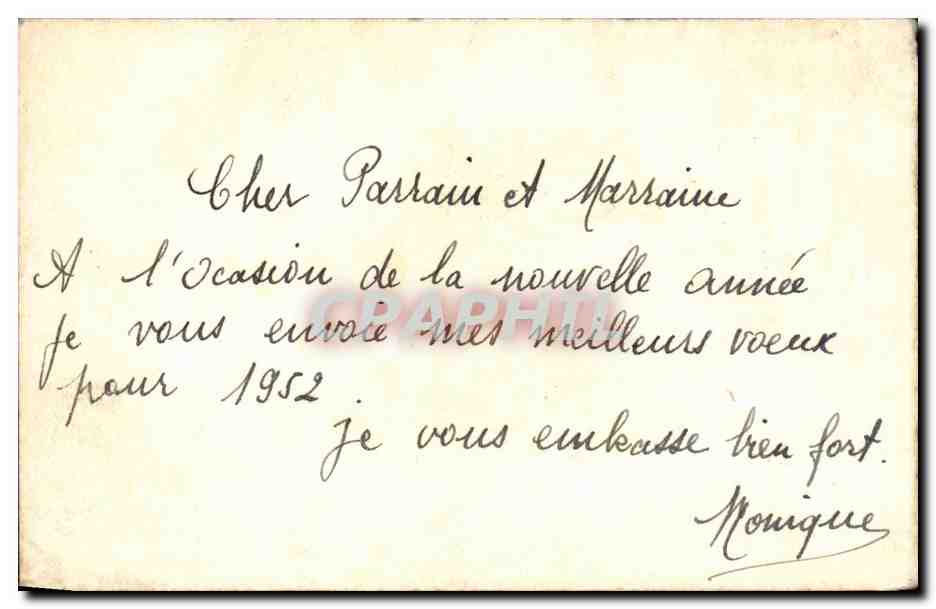 Cher Parrain et Marraine
A l'ocasion de la nouvelle année
je vous envoie mes meilleurs voeux
pour 1952.
je vous embrasse bien fort.
Monique
CPAPHIL